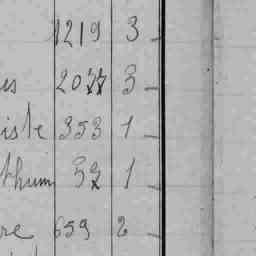 1219 3 -
us 2077 3 -
iste 353 1 -
thum 32 1 -
re 659 2 -